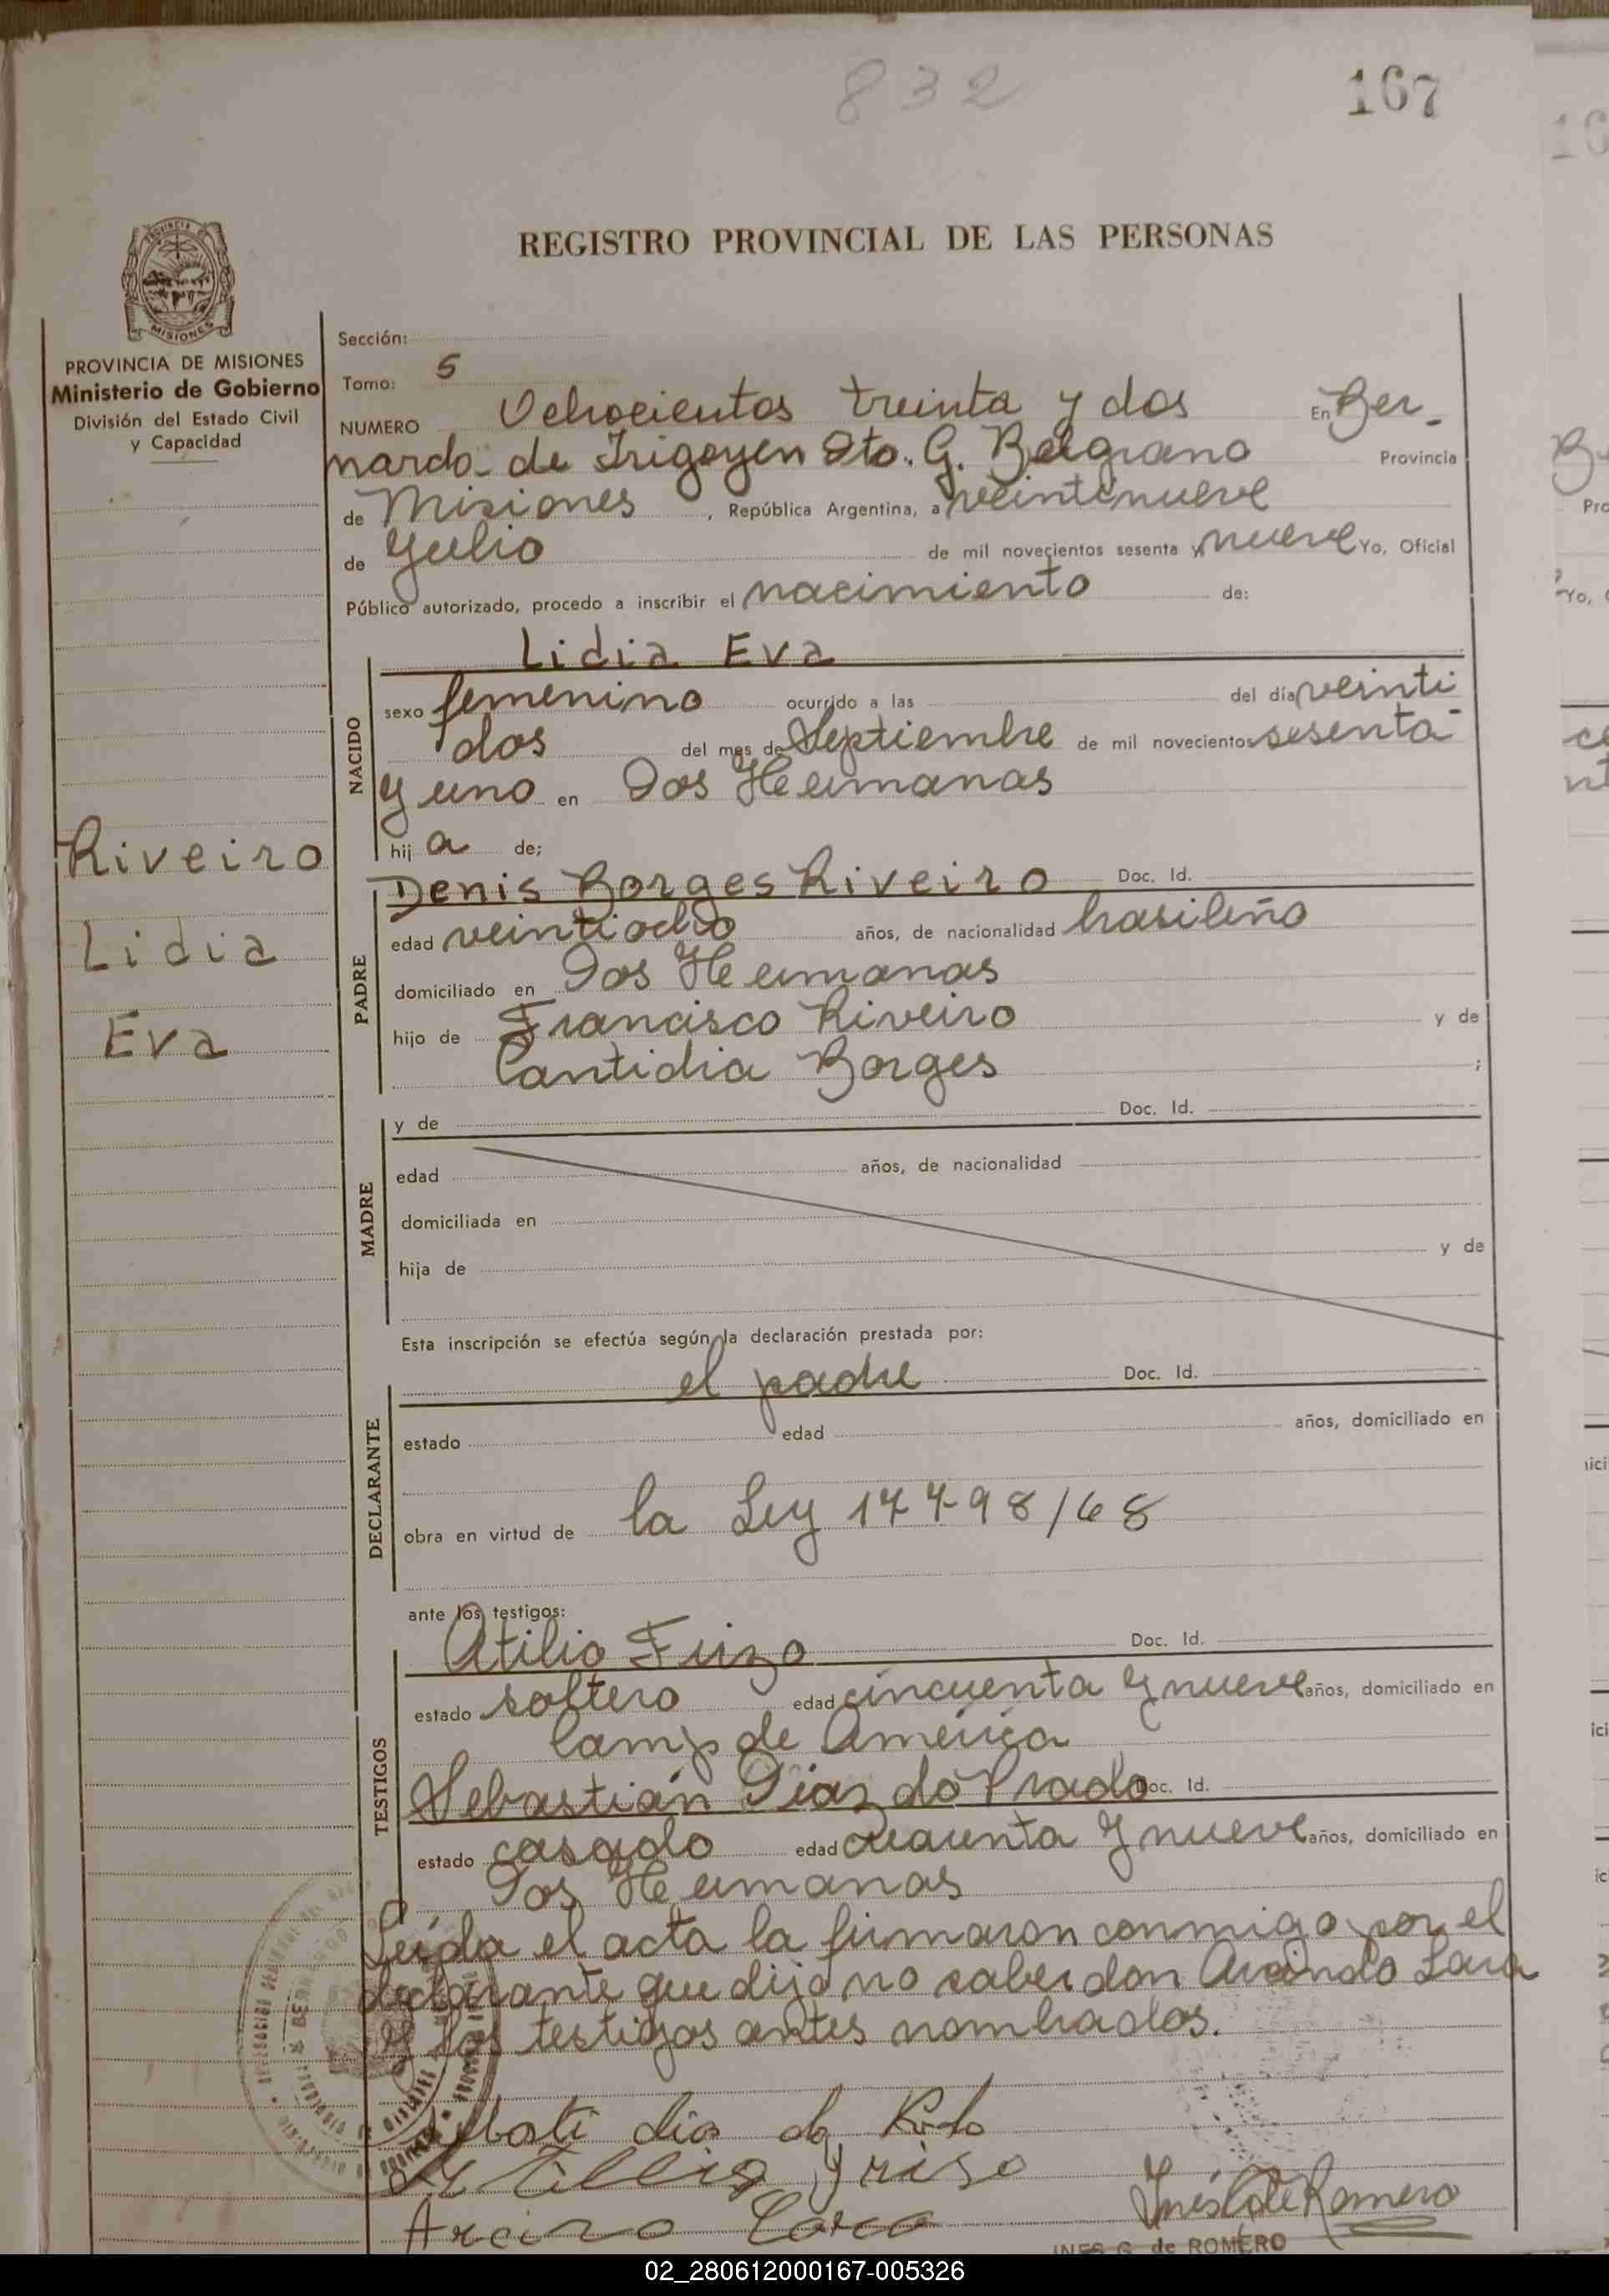 832
167
REGISTRO PROVINCIAL DE LAS PERSONAS
PROVINCIA DE MISIONES
Ministerio de Gobierno
División del Estado Civil
y Capacidad
Riveiro
Lidia
Eva
Sección:
Tomo: 5
NUMERO Ochocientos treinta y dos En Ber-
nardo de Irigoyen Dto. G. Belgrano Provincia
de Misiones, República Argentina, a veintinueve
de Julio de mil novecientos sesenta y nueve Yo, Oficial
Público autorizado, procedo a inscribir el nacimiento de:
Lidia Eva
NACIDO
sexo femenino ocurrido a las del día veinti
dos del mes de Septiembre de mil novecientos sesenta
y uno en Dos Hermanas
hija de;
PADRE
Denis Borges Riveiro Doc. Id.
edad veintiocho años, de nacionalidad brasileño
domiciliado en Dos Hermanas
hijo de Francisco Riveiro y de
Cantidia Borges ;
MADRE
y de Doc. Id.
edad años, de nacionalidad
domiciliada en
hija de y de
Esta inscripción se efectúa según la declaración prestada por:
DECLARANTE
el padre Doc. Id.
estado edad años, domiciliado en
obra en virtud de la Ley 17798/68
ante los testigos:
TESTIGOS
Atilio Frizo Doc. Id.
estado soltero edad cincuenta y nueve años, domiciliado en
Camp de América
Sebastián Díaz do Prado Doc. Id.
estado casado edad cuarenta y nueve años, domiciliado en
Dos Hermanas
Leída el acta la firmaron conmigo por el
declarante que dijo no saber don Arcindo Lara
y los testigos antes nombrados.
Inés G. de Romero
INES G. de ROMERO
02_280612000167-005326